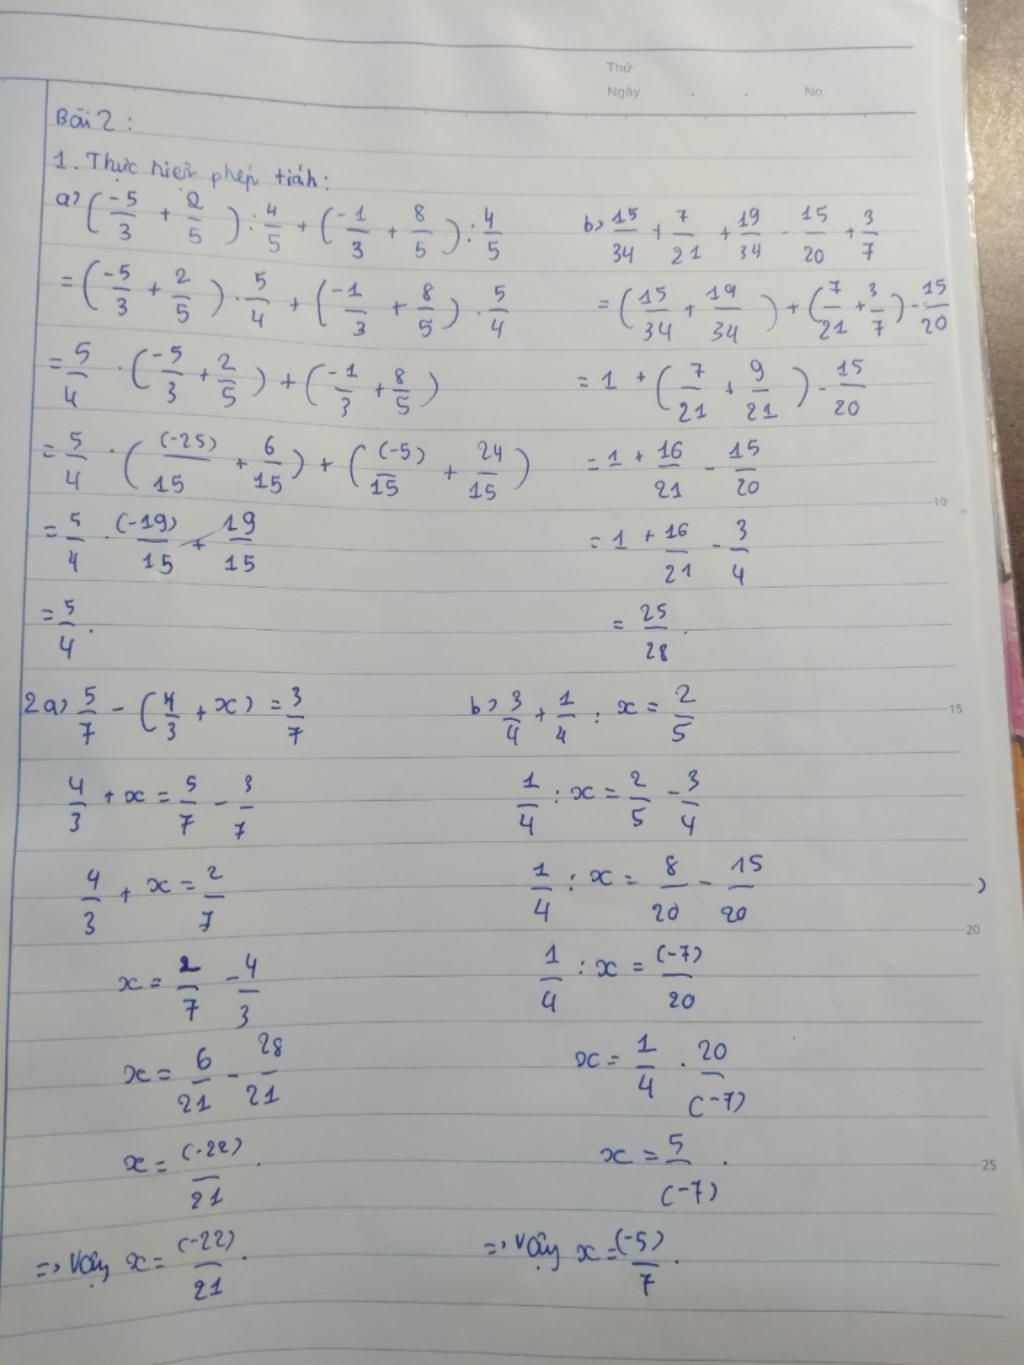 Thứ
Ngày . . No.
Bài 2 :
1. Thực hiện phép tính :
a) (-5/3 + 2/5) : 4/5 + (-1/3 + 8/5) : 4/5
= (-5/3 + 2/5) . 5/4 + (-1/3 + 8/5) . 5/4
= 5/4 . (-5/3 + 2/5) + (-1/3 + 8/5)
= 5/4 . ((-25)/15 + 6/15) + ((-5)/15 + 24/15)
= 5/4 . (-19)/15 + 19/15
= 5/4 .
b) 15/34 + 7/21 + 19/34 - 15/20 + 3/7
= (15/34 + 19/34) + (7/21 + 3/7) - 15/20
= 1 + (7/21 + 9/21) - 15/20
= 1 + 16/21 - 15/20
= 1 + 16/21 - 3/4
= 25/28 .
2 a) 5/7 - (4/3 + x) = 3/7
4/3 + x = 5/7 - 3/7
4/3 + x = 2/7
x = 2/7 - 4/3
x = 6/21 - 28/21
x = (-22)/21 .
=> Vậy x = (-22)/21 .
b) 3/4 + 1/4 : x = 2/5
1/4 : x = 2/5 - 3/4
1/4 : x = 8/20 - 15/20
1/4 : x = (-7)/20
x = 1/4 . 20/(-7)
x = 5/(-7) .
=> Vậy x = (-5)/7 .
10
15
20
25